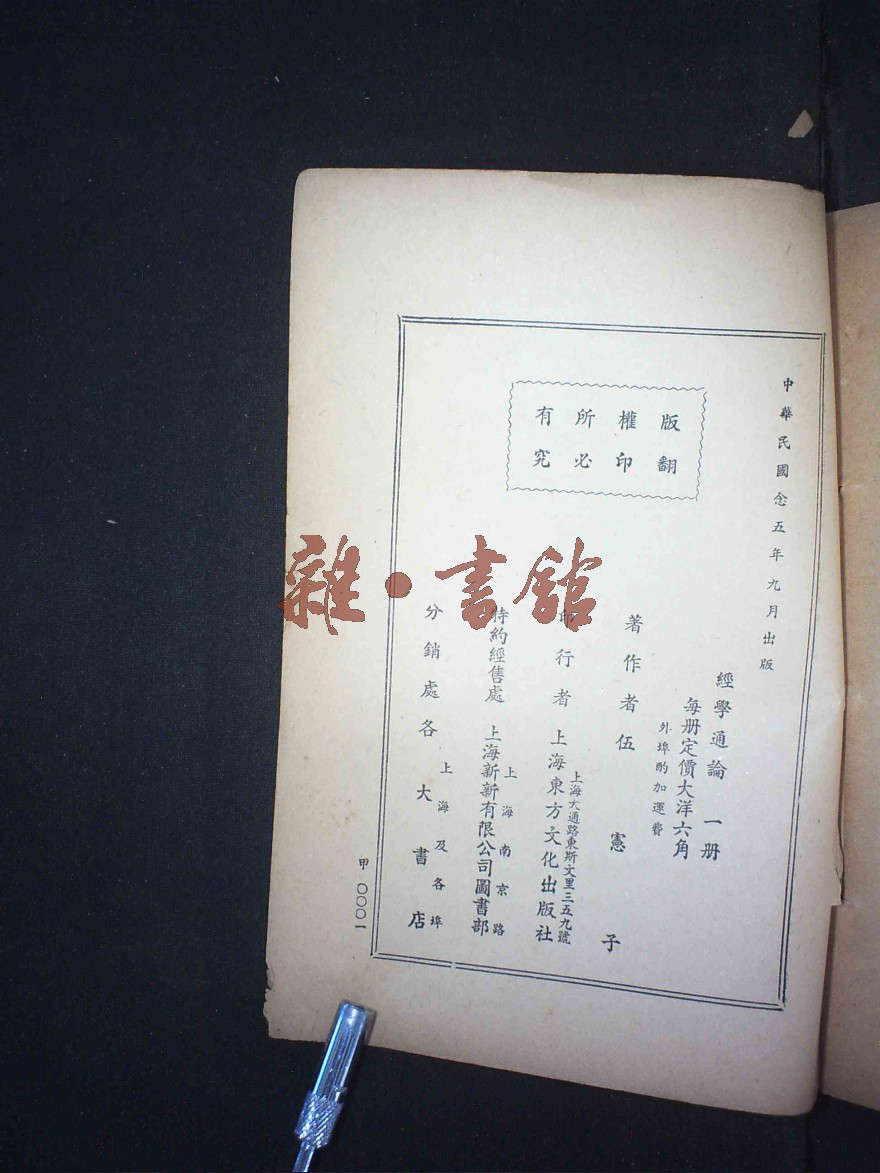 中華民國念五年九月出版
版權所有
翻印必究
經學通論 一册
每册定價大洋六角
外埠酌加運費
著作者 伍憲子
印行者 上海東方文化出版社
上海大通路東斯文里三五九號
特約經售處 上海新新有限公司圖書部
上海南京路
分銷處 各大書店
上海及各埠
甲 〇〇〇一
雜·書館